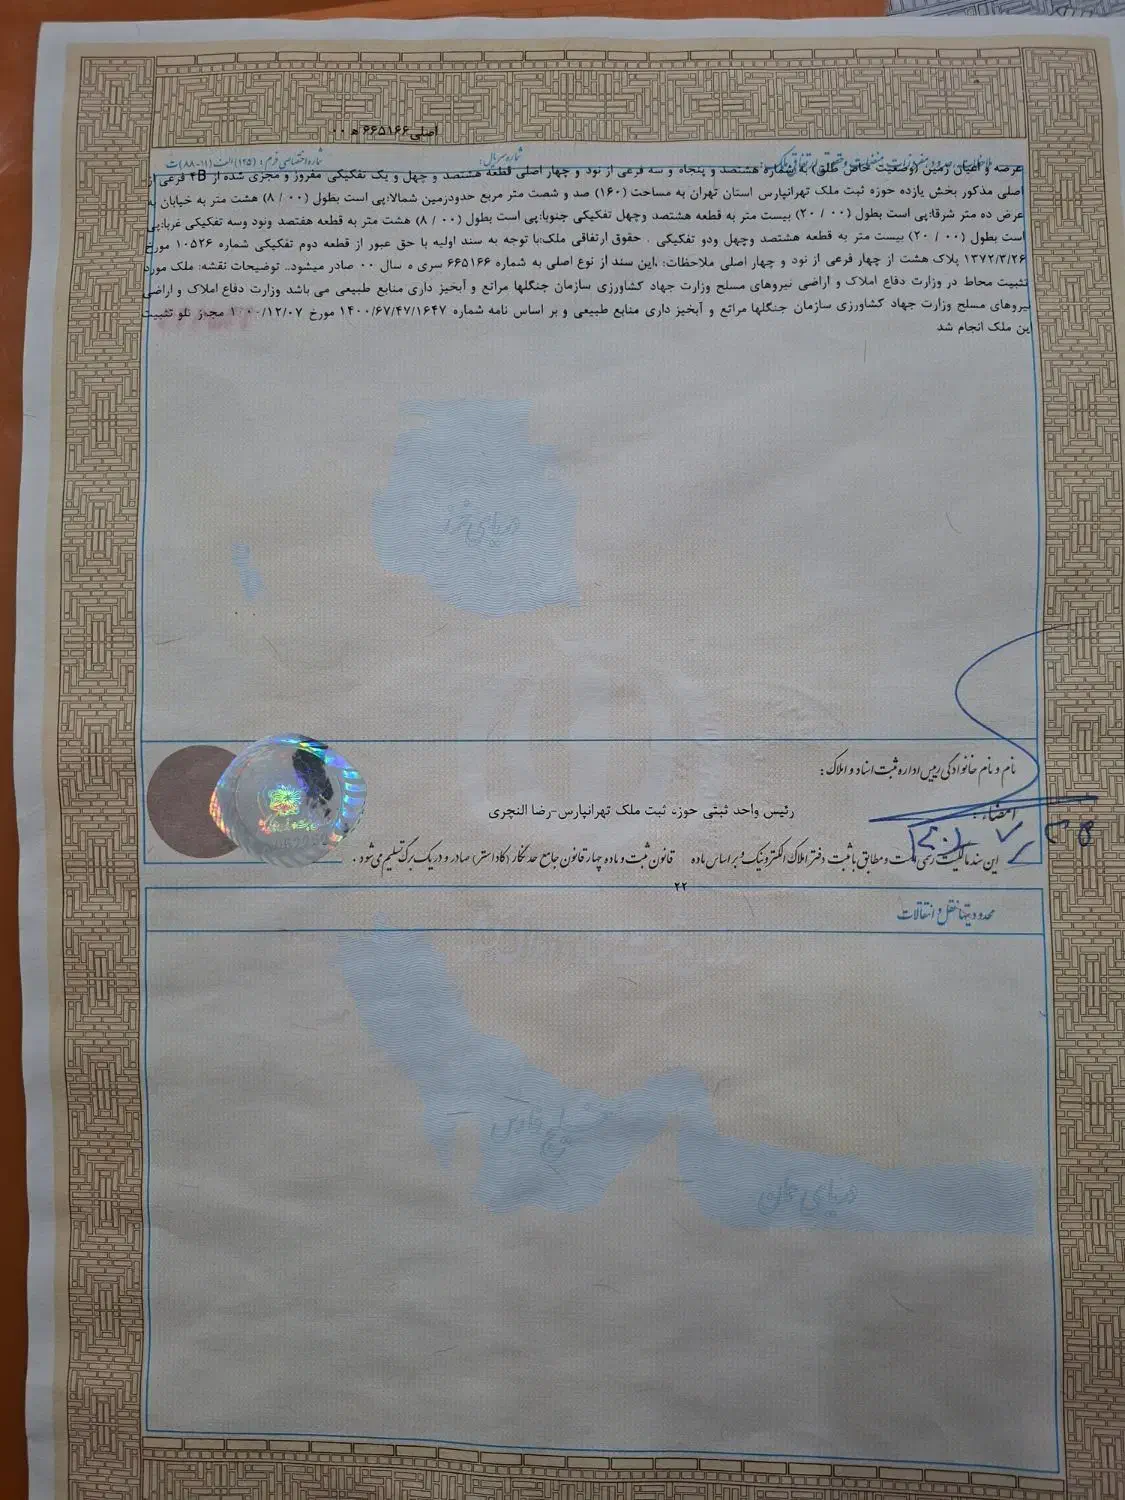 اصلی ۶۶۵۱۶۶ ه ۰۰
شماره سریال: شماره اختصاصی فرم: (۱۲۵) الف (۱۱-۸۸) ث
عرصه و اعیان زمین (وضعیت خاص طلق) به شماره هشتصد و پنجاه و سه فرعی از نود و چهار اصلی قطعه هشتصد و چهل و یک تفکیکی مفروز و مجزی شده از ۴B فرعی از
اصلی مذکور بخش یازده حوزه ثبت ملک تهرانپارس استان تهران به مساحت (۱۶۰) صد و شصت متر مربع حدودزمین شمالا:پی است بطول (۰۰ / ۸) هشت متر به خیابان به
عرض ده متر شرقا:پی است بطول (۰۰ / ۲۰) بیست متر به قطعه هشتصد وچهل تفکیکی جنوبا:پی است بطول (۰۰ / ۸) هشت متر به قطعه هفتصد ونود وسه تفکیکی غربا:پی
است بطول (۰۰ / ۲۰) بیست متر به قطعه هشتصد وچهل ودو تفکیکی . حقوق ارتفاقی ملک:با توجه به سند اولیه با حق عبور از قطعه دوم تفکیکی شماره ۱۰۵۲۶ مورخ
۱۳۷۲/۳/۲۶ پلاک هشت از چهار فرعی از نود و چهار اصلی ملاحظات: ،این سند از نوع اصلی به شماره ۶۶۵۱۶۶ سری ه سال ۰۰ صادر میشود.. توضیحات نقشه: ملک مورد
تثبیت محاط در وزارت دفاع املاک و اراضی نیروهای مسلح وزارت جهاد کشاورزی سازمان جنگلها مراتع و آبخیز داری منابع طبیعی می باشد وزارت دفاع املاک و اراضی
نیروهای مسلح وزارت جهاد کشاورزی سازمان جنگلها مراتع و آبخیز داری منابع طبیعی و بر اساس نامه شماره ۱۴۰۰/۶۷/۴۷/۱۶۴۷ مورخ ۱۴۰۰/۱۲/۰۷ تثبیت
این ملک انجام شد
دریای خزر
نام و نام خانوادگی رییس اداره ثبت اسناد و املاک:
رئیس واحد ثبتی حوزه ثبت ملک تهرانپارس-رضا النچری
امضاء:
این سند مالکیت رسمی است و مطابق با ثبت دفتر املاک الکترونیک و بر اساس ماده ۲۲ قانون ثبت و ماده چهار قانون جامع حدنگار (کاداستر) صادر و در یک برگ تسلیم می‌شود.
محدودیتها نقل و انتقالات
خلیج فارس
دریای عمان